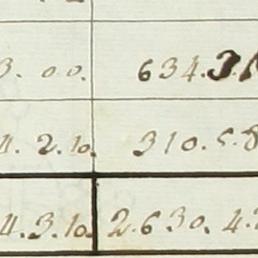 3. 00. 634.3.
4. 2.10. 310.5.8
4.3.10. 2.630. 4.